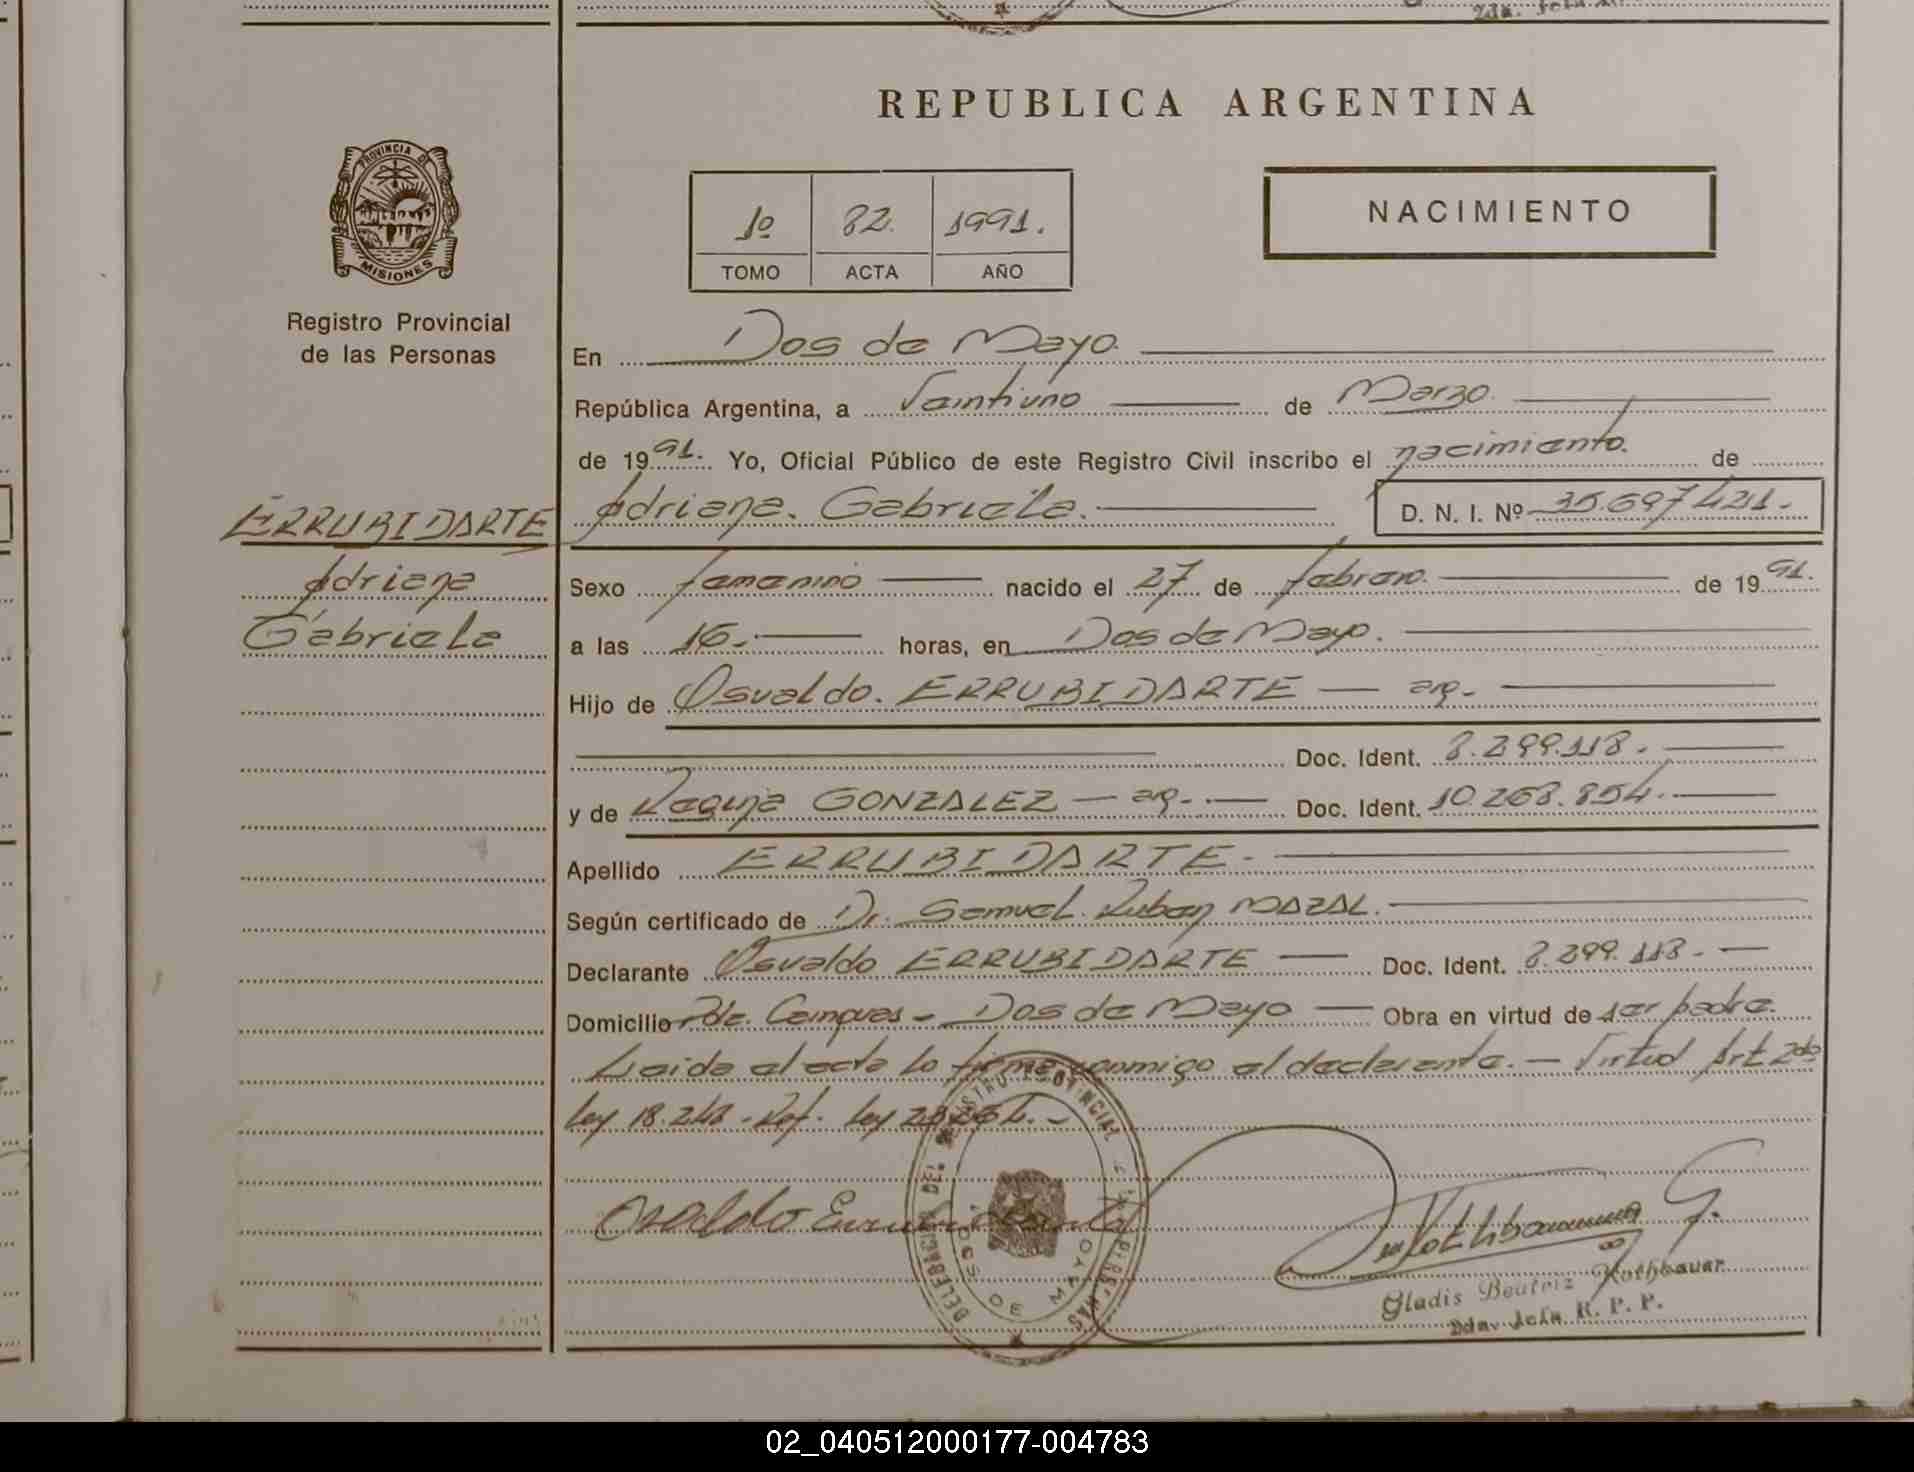 2da. Jefa
REPUBLICA ARGENTINA
PROVINCIA DE
MISIONES
Registro Provincial
de las Personas
NACIMIENTO
1º 82. 1991.
TOMO ACTA AÑO
En Dos de Mayo.
República Argentina, a Veintiuno de Marzo.
de 1991. Yo, Oficial Público de este Registro Civil inscribo el nacimiento. de
Adriana. Gabriela. D. N. I. Nº 35.697.421.
ERRUBIDARTE
Adriana
Gabriela
Sexo femenino nacido el 27 de febrero. de 1991.
a las 16. horas, en Dos de Mayo.
Hijo de Osvaldo. ERRUBIDARTE — arg.
Doc. Ident. 8.299.118.
y de GONZALEZ — arg. Doc. Ident. 10.268.854.
Apellido ERRUBIDARTE.
Según certificado de Dr. Samuel. Ruben MAZAL.
Declarante Osvaldo ERRUBIDARTE Doc. Ident. 8.299.118.
Domicilio Pde. Campues - Dos de Mayo Obra en virtud de ser padre.
Leida el acta la firma conmigo el declarante. — Virtud Art 2do
ley 18.248 - Ref. ley
Osvaldo
DELEGACION DEL REGISTRO PROVINCIAL DE LAS PERSONAS
DOS DE MAYO
Rothbauer G.
Gladis Beatriz Rothbauer
2da. Jefa R. P. P.
02_040512000177-004783